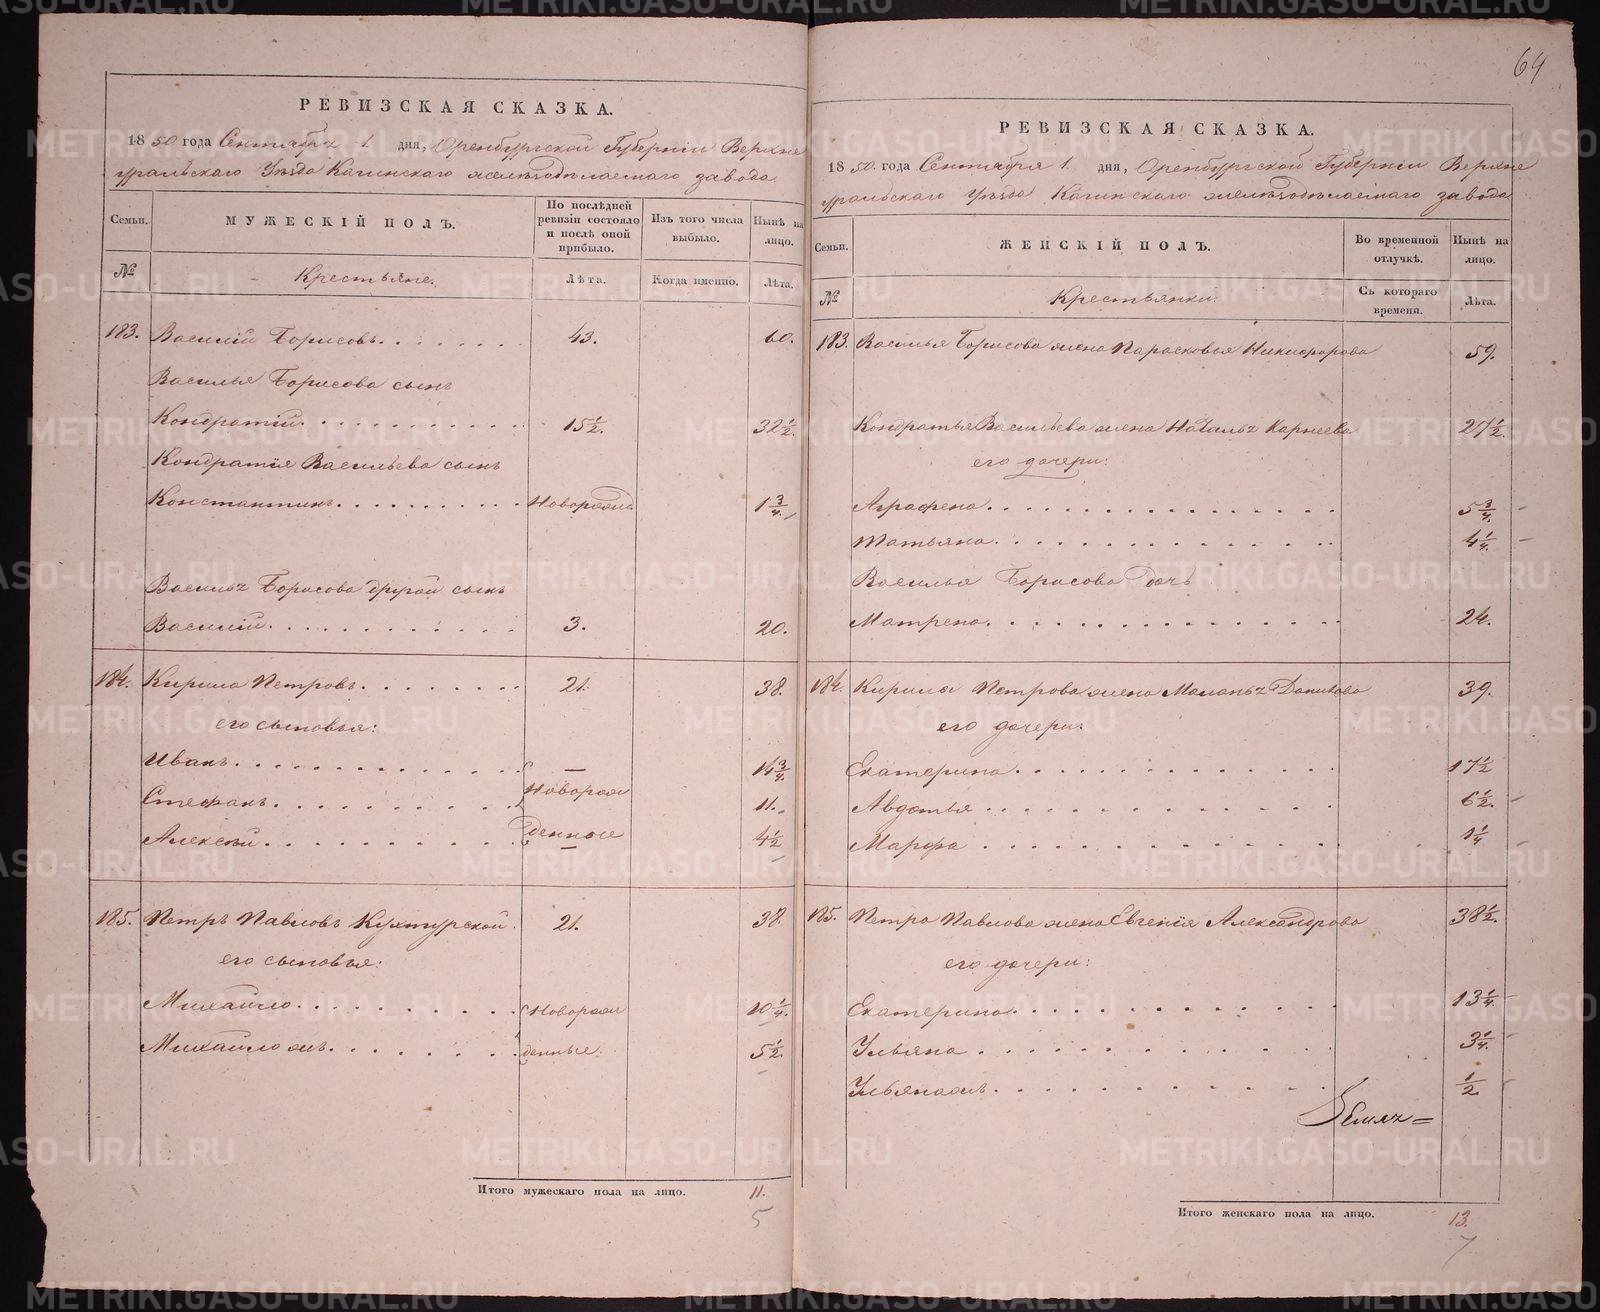 64
РЕВИЗСКАЯ СКАЗКА.
1850 года Сентября 1 дня, Оренбургской Губерніи Верхне
уральскаго Уѣзда Кагинскаго желѣзодѣлаемаго завода
Семьи. МУЖЕСКІЙ ПОЛЪ. По послѣдней ревизіи состояло и послѣ оной прибыло. Изъ того числа выбыло. Нынѣ на лицо.
№ Крестьяне. Лѣта. Когда именно. Лѣта.
183. Василій Борисовъ. 43. 60.
Василья Борисова сынъ
Кондратій. 15 1/2. 32 1/2.
Кондратія Васильева сынъ
Константинъ. Новорожд 1 3/4.
Василья Борисова другой сынъ
Василій. 3. 20.
184. Кирила Петровъ. 21. 38.
его сыновья:
Иванъ. 14 3/4
Стефанъ. Новорож 11.
Алексѣй. денные 4 1/2
185. Петръ Павловъ Кухтурской. 21. 38.
его сыновья:
Михайло. Новорож 10 1/4.
Михайло жъ. денные. 5 1/2.
Итого мужескаго пола на лицо. 11.
5
РЕВИЗСКАЯ СКАЗКА.
1850 года Сентября 1 дня, Оренбургской Губерніи Верхне
уральскаго Уѣзда Кагинскаго желѣзодѣлаемаго завода
Семьи. ЖЕНСКІЙ ПОЛЪ. Во временной отлучкѣ. Нынѣ на лицо.
№ Крестьянки. Съ котораго времени. Лѣта.
183. Василья Борисова жена Парасковья Никифорова 59.
Кондратья Васильева жена Наталья Карнеева 27 1/2.
его дочери:
Аграфена. 5 3/4.
Татьяна. 4 1/4.
Василья Борисова дочь
Матрена. 24.
184. Кирилы Петрова жена Маланья Данилова 39.
его дочери:
Екатерина. 17 1/2
Авдотья. 6 1/2.
Марфа. 1 1/4
185. Петра Павлова жена Евгенія Александрова 38 1/2.
его дочери:
Екатерина. 13 1/4.
Ульяна. 3 1/4.
Ульяна жъ. 1/2
Итого женскаго пола на лицо. 13.
7
METRIKI.GASO-URAL.RU